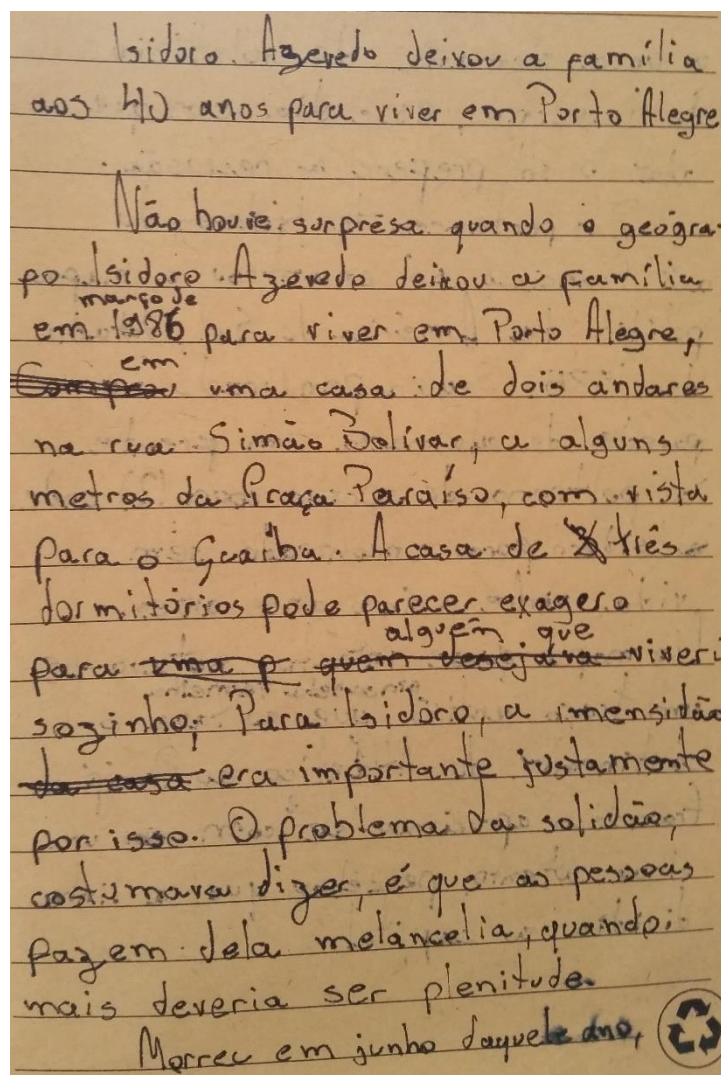 Isidoro Azevedo deixou a família
aos 40 anos para viver em Porto Alegre
Não houve surpresa quando o geógra-
fo Isidoro Azevedo deixou a família
março de
em 1986 para viver em Porto Alegre,
em
uma casa de dois andares
na rua Simão Bolívar, a alguns
metros da Praça Paraíso, com vista
para o Guaíba. A casa de três
dormitórios pode parecer exagero
alguém que
para uma p quem desejava viveri
sozinho; Para Isidoro, a imensidão
da casa era importante justamente
por isso. O problema da solidão,
costumava dizer, é que as pessoas
fazem dela melancolia, quando
mais deveria ser plenitude.
Morreu em junho daquele ano,